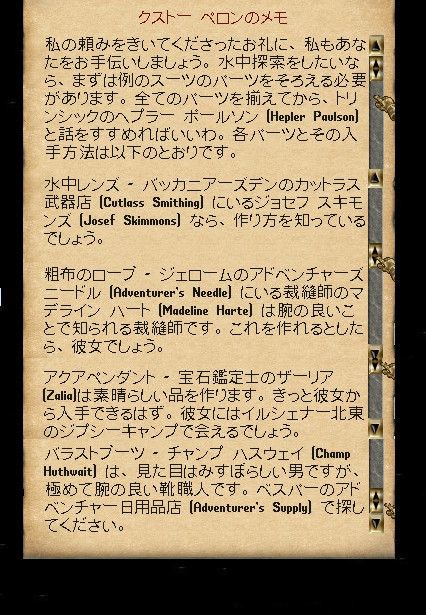 クストー ペロンのメモ
私の頼みをきいてくださったお礼に、私もあな
たをお手伝いしましょう。水中探索をしたいな
ら、まずは例のスーツのパーツをそろえる必要
があります。全てのパーツを揃えてから、トリ
ンシックのヘプラー ポールソン (Hepler Paulson)
と話をすすめればいいわ。各パーツとその入
手方法は以下のとおりです。
水中レンズ - バッカニアーズデンのカットラス
武器店 (Cutlass Smithing) にいるジョセフ スキモ
ンズ (Josef Skimmons) なら、作り方を知っている
でしょう。
粗布のローブ - ジェロームのアドベンチャーズ
ニードル (Adventurer's Needle) にいる裁縫師のマ
デライン ハート (Madeline Harte) は腕の良いこ
とで知られる裁縫師です。これを作れるとした
ら、彼女でしょう。
アクアペンダント - 宝石鑑定士のザーリア
(Zalia)は素晴らしい品を作ります。きっと彼女か
ら入手できるはず。彼女にはイルシェナー北東
のジプシーキャンプで会えるでしょう。
バラストブーツ - チャンプ ハスウェイ (Champ
Huthwait) は、見た目はみすぼらしい男ですが、
極めて腕の良い靴職人です。ベスパーのアド
ベンチャー日用品店 (Adventurer's Supply) で探し
てください。